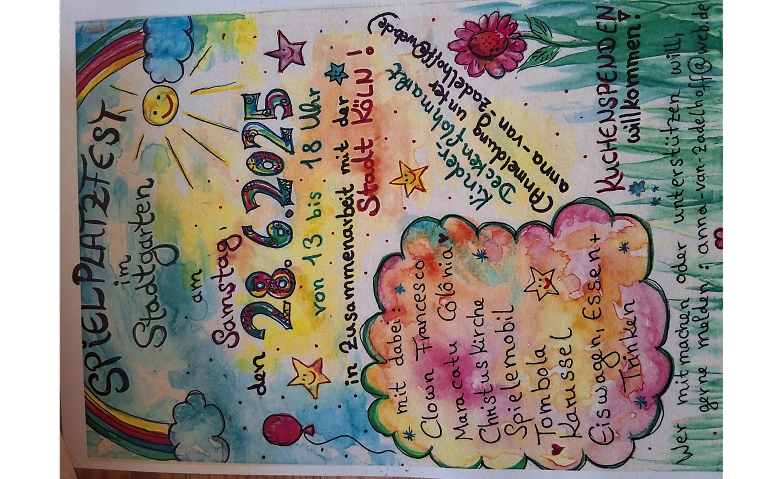 SPIELPLATZFEST
im
Stadtgarten
am
Samstag,
den 28.6.2025
von 13 bis 18 Uhr
in Zusammenarbeit mit der
Stadt KÖLN!
Kinder-
Deckenflohmarkt
(Anmeldung unter
anna-van-zadelhoff@web.de)
mit dabei:
Clown Francesco
Maracatu Colônia
Christuskirche
Spielemobil
Tombola
Karussel
Eiswagen, Essen+
Trinken
KUCHENSPENDEN
willkommen!
Wer mitmachen oder unterstützen will,
gerne melden: anna-van-zadelhoff@web.de